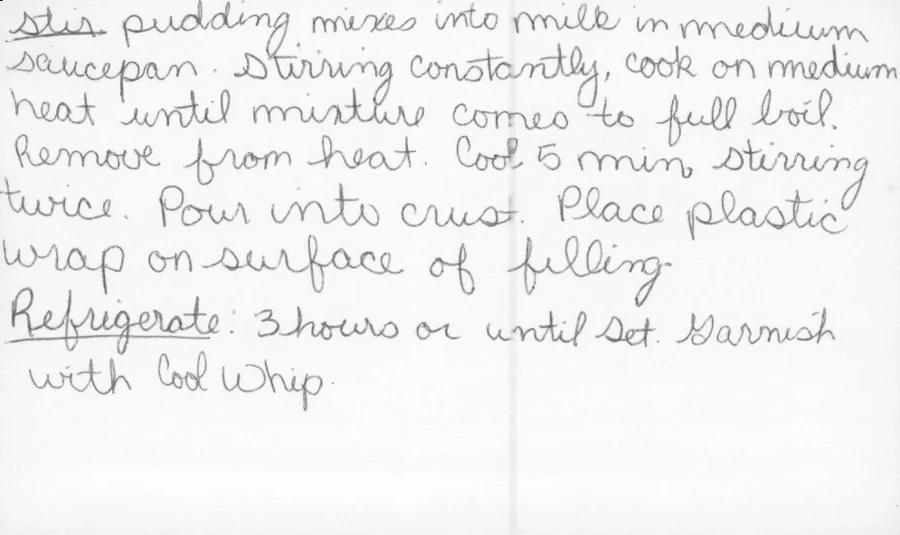 Stir pudding mixes into milk in medium
saucepan. Stirring constantly, cook on medium
heat until mixture comes to full boil.
Remove from heat. Cool 5 min, stirring
twice. Pour into crust. Place plastic
wrap on surface of filling.
Refrigerate: 3 hours or until set. Garnish
with Cool Whip.